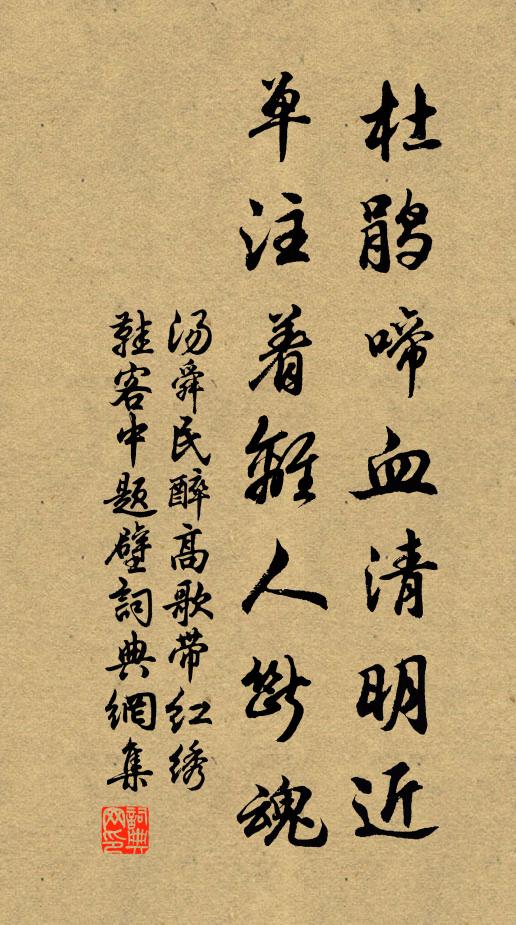 杜鹃啼血清明近
单注着離人断魂
汤舜民醉高歌带红绣
鞋客中题壁詞典網集
詞典网印